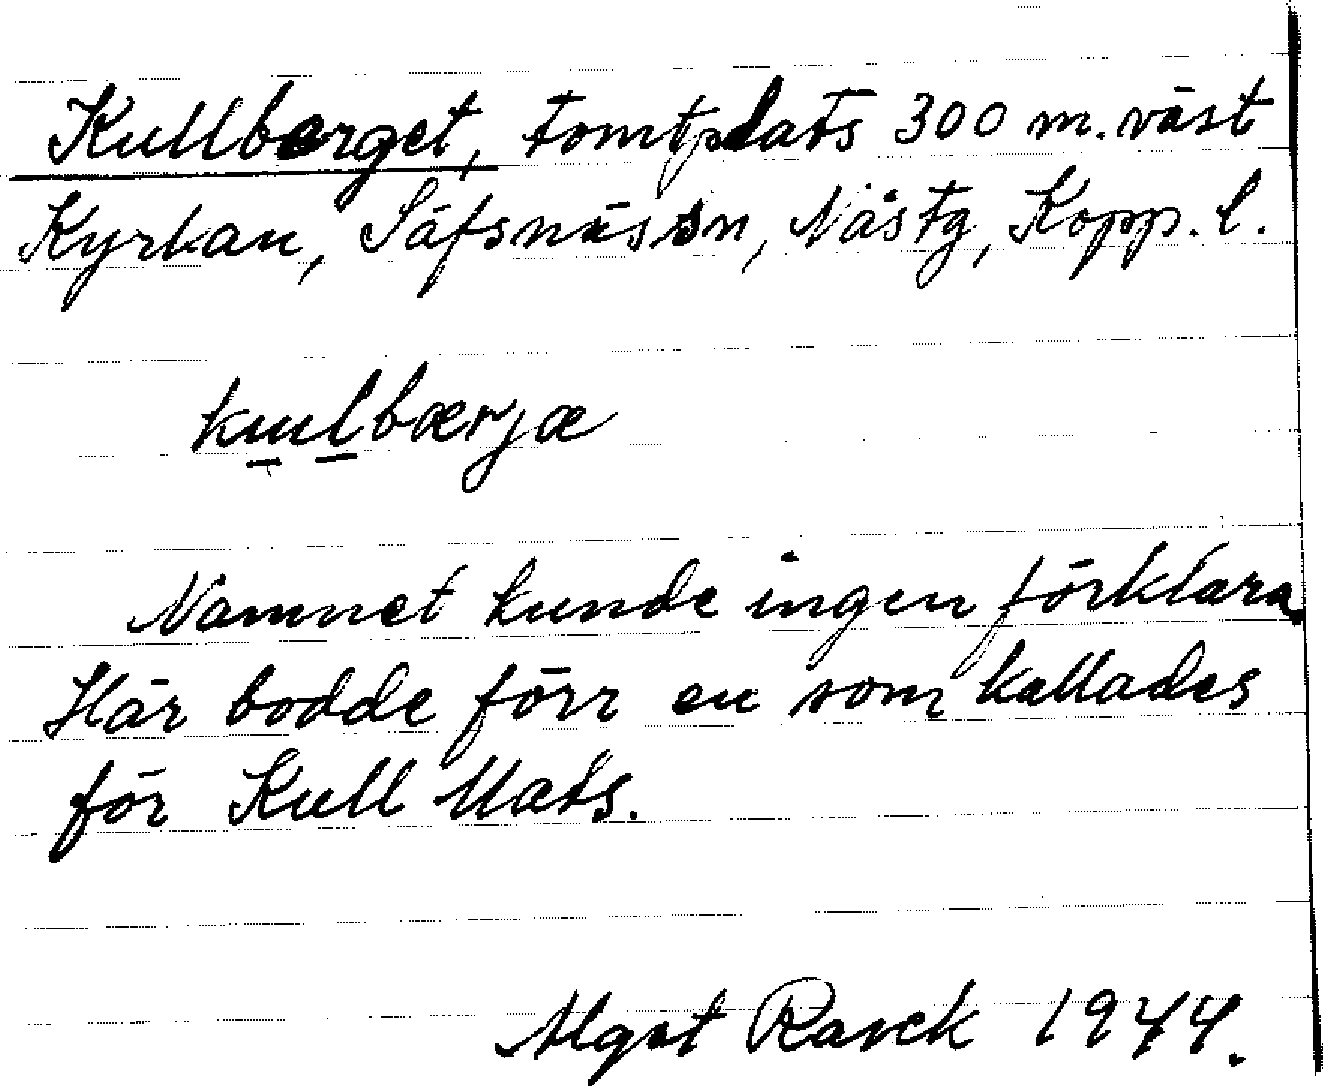 Kullberget, tomtplats 300 m. väst
Kyrkan, Säfsnäs sn, Nås tg, Kopp. l.
kuulbærjæ
Namnet kunde ingen förklara.
Här bodde förr en som kallades
för Kull Mats.
Mgat Rask 1944.